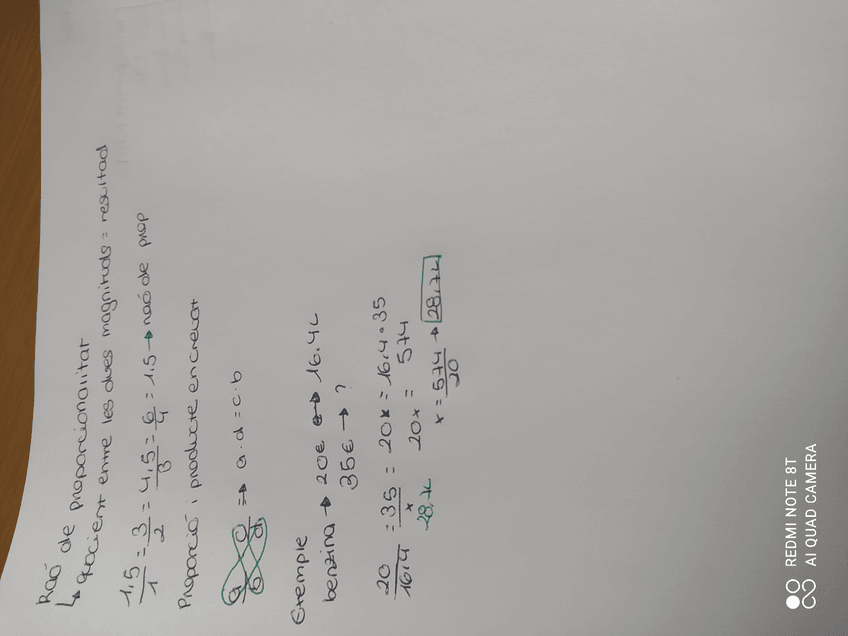 Raó de proporcionalitat
↳ quocient entre les dues magnituds = resultad
1,5/1 = 3/2 = 4,5/3 = 6/4 = 1,5 → raó de prop
Proporció i producte encreuat
a/b = c/d => a·d = c·b
Exemple
benzina → 20€ → 16.4L
35€ → ?
20/16.4 = 35/x = 20x = 16.4·35
28,7L
20x = 574
x = 574/20 → 28,7L
REDMI NOTE 8T
AI QUAD CAMERA